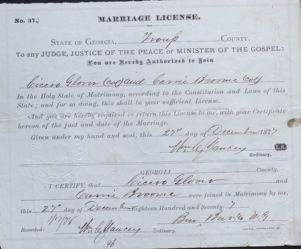 No. 37.) MARRIAGE LICENSE.
STATE OF GEORGIA, Troup COUNTY.
To any JUDGE, JUSTICE OF THE PEACE or MINISTER OF THE GOSPEL:
You are Hereby Authorized to Join
Cicero Glover (col) and Carrie Broome (col)
In the Holy State of Matrimony, according to the Constitution and Laws of this
State; and for so doing, this shall be your sufficient License.
And you are hereby required to return this License to me, with your Certificate
hereon of the fact and date of the Marriage.
Given under my hand and seal, this 27th day of December 1877
Wm C Yancey
Ordinary.
GEORGIA County.
I CERTIFY, that Cicero Glover and
Carrie Broome were joined in Matrimony by me,
this 27th day of December Eighteen Hundred and Seventy-7
Recorded 1/7/78
Wm C Yancey
Ordinary.